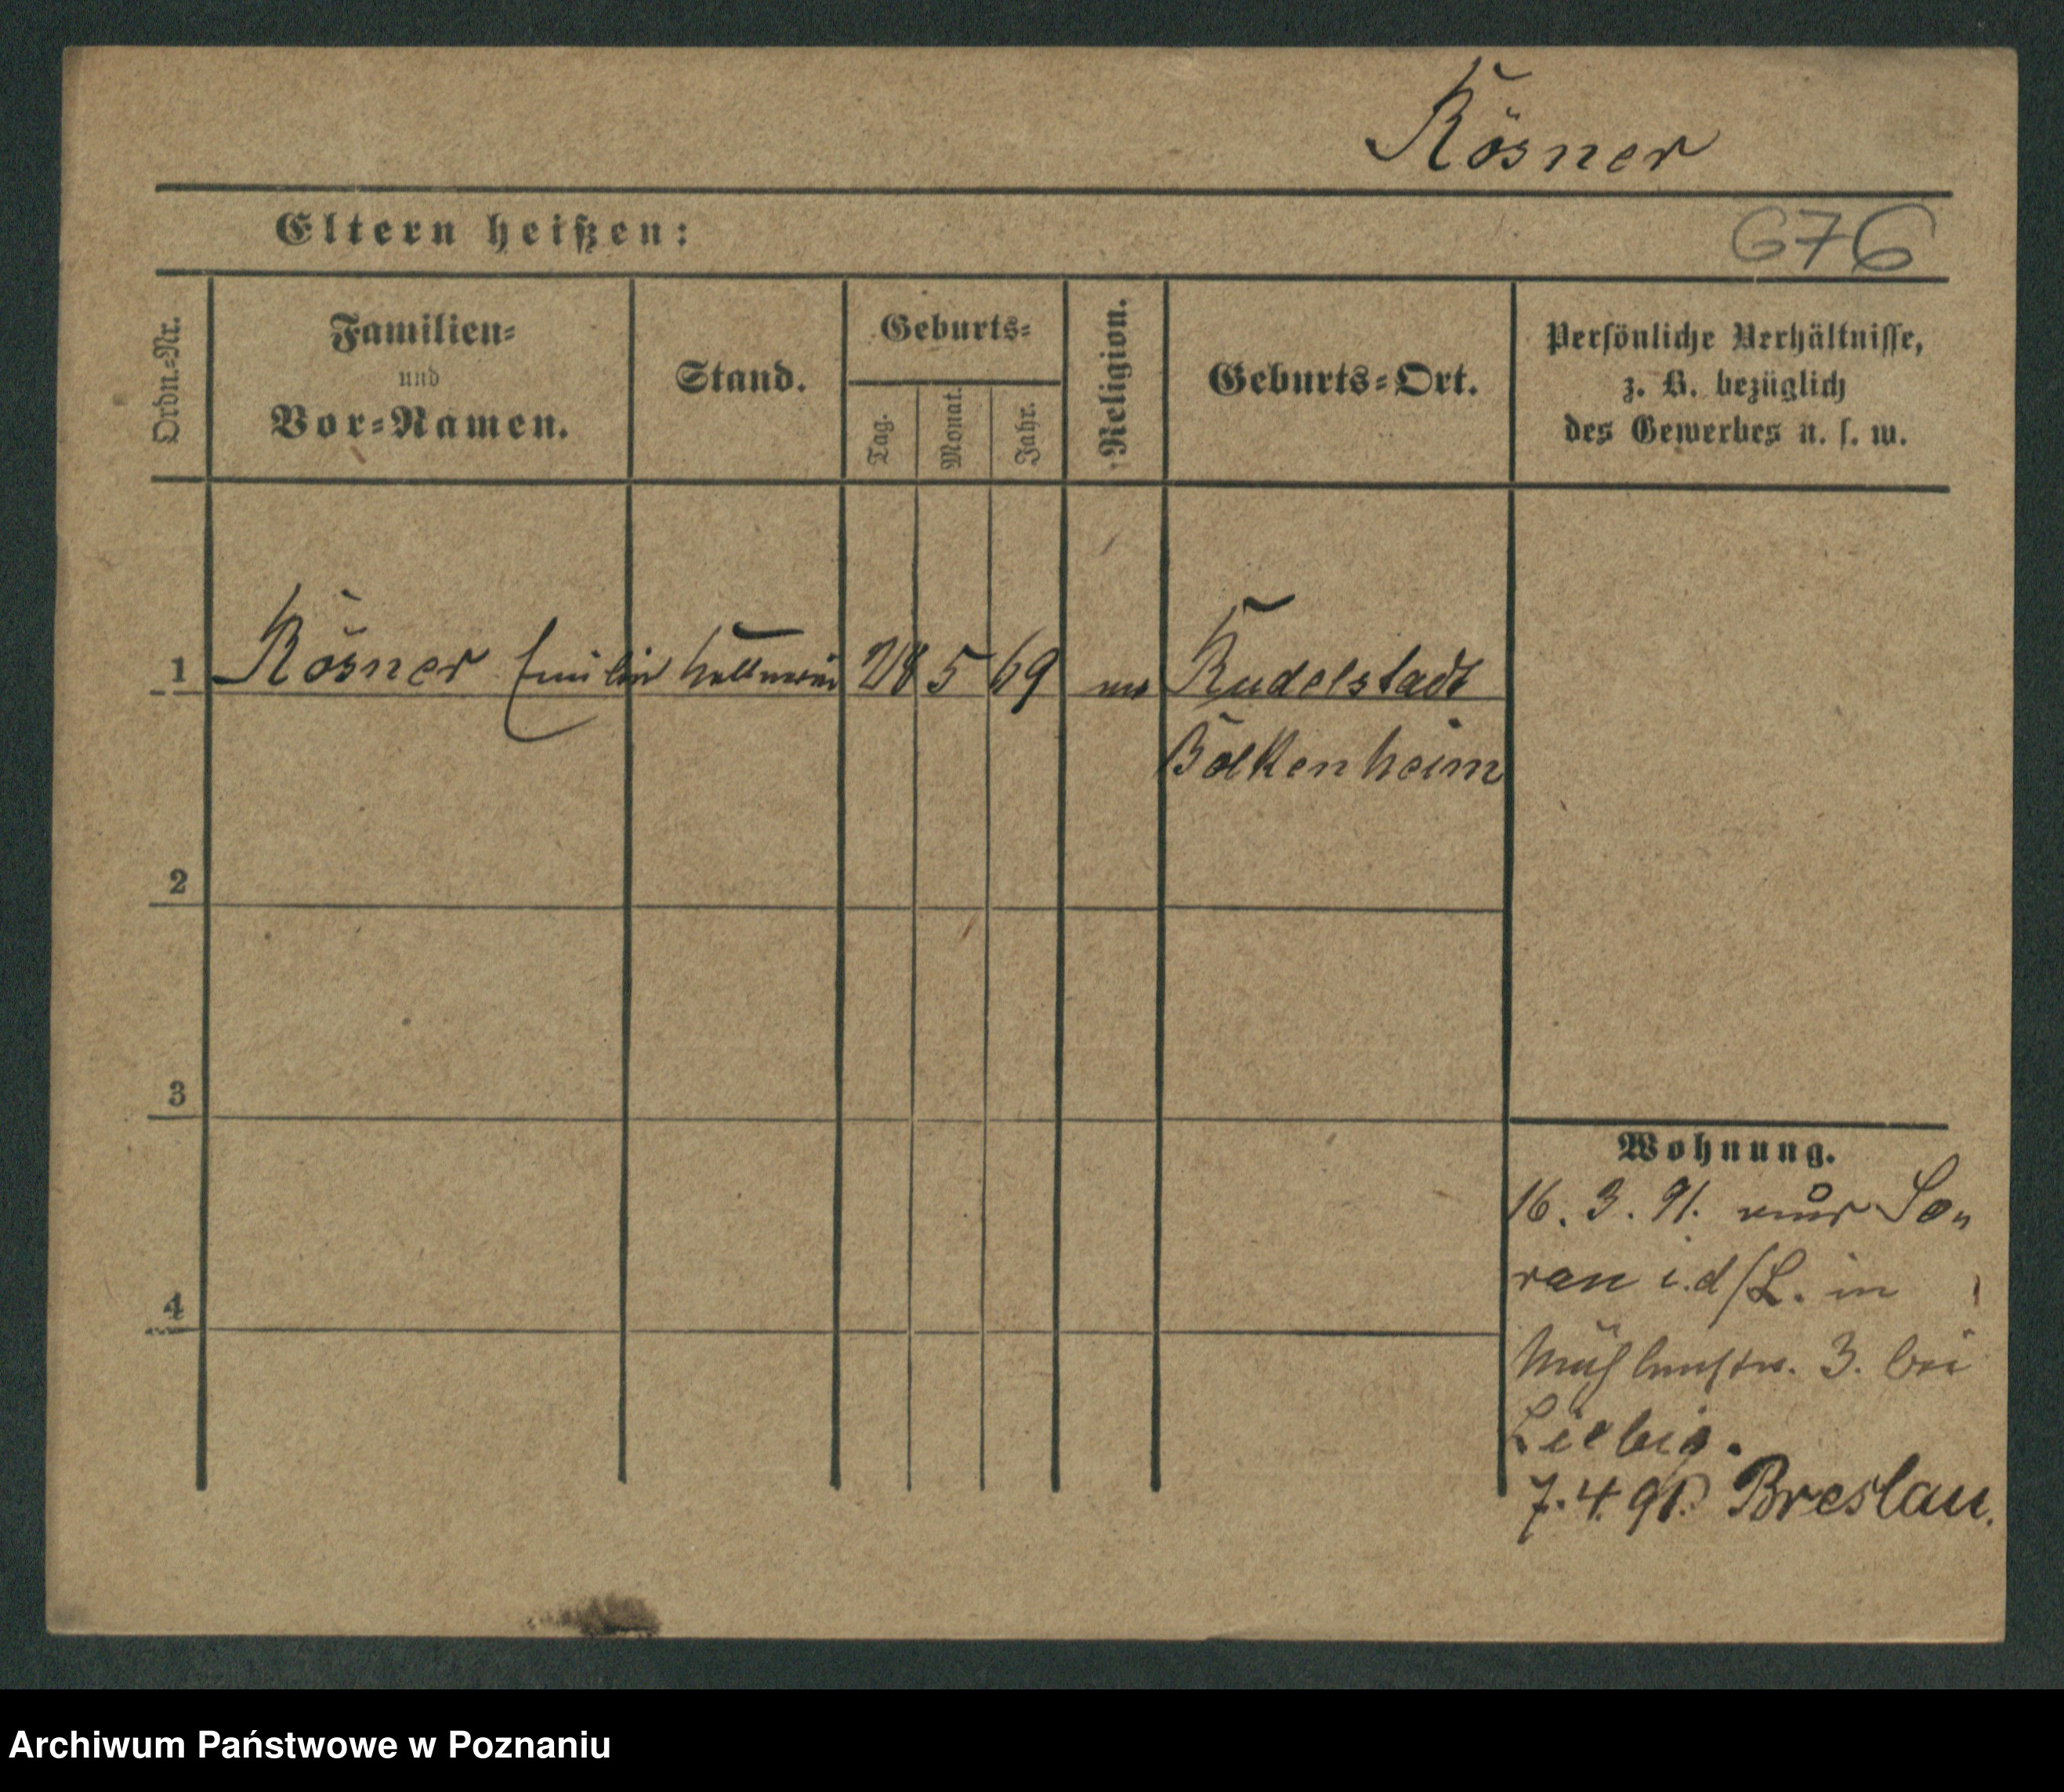 Rösner
676
Eltern heißen:
Ordn.=Nr.
Familien=
und
Vor=Namen.
Stand.
Geburts=
Tag.
Monat.
Jahr.
Religion.
Geburts=Ort.
Persönliche Verhältnisse,
z. B. bezüglich
des Gewerbes u. s. w.
1 Rösner Emilie Kellnerin 28 5 69 Rudelstadt
Bolkenheim
2
3
4
Wohnung.
16. 3. 91. So„
rau i.d/L. in
Mühlenstr. 3. bei
Liebig.
7. 4. 91. Breslau.
Archiwum Państwowe w Poznaniu